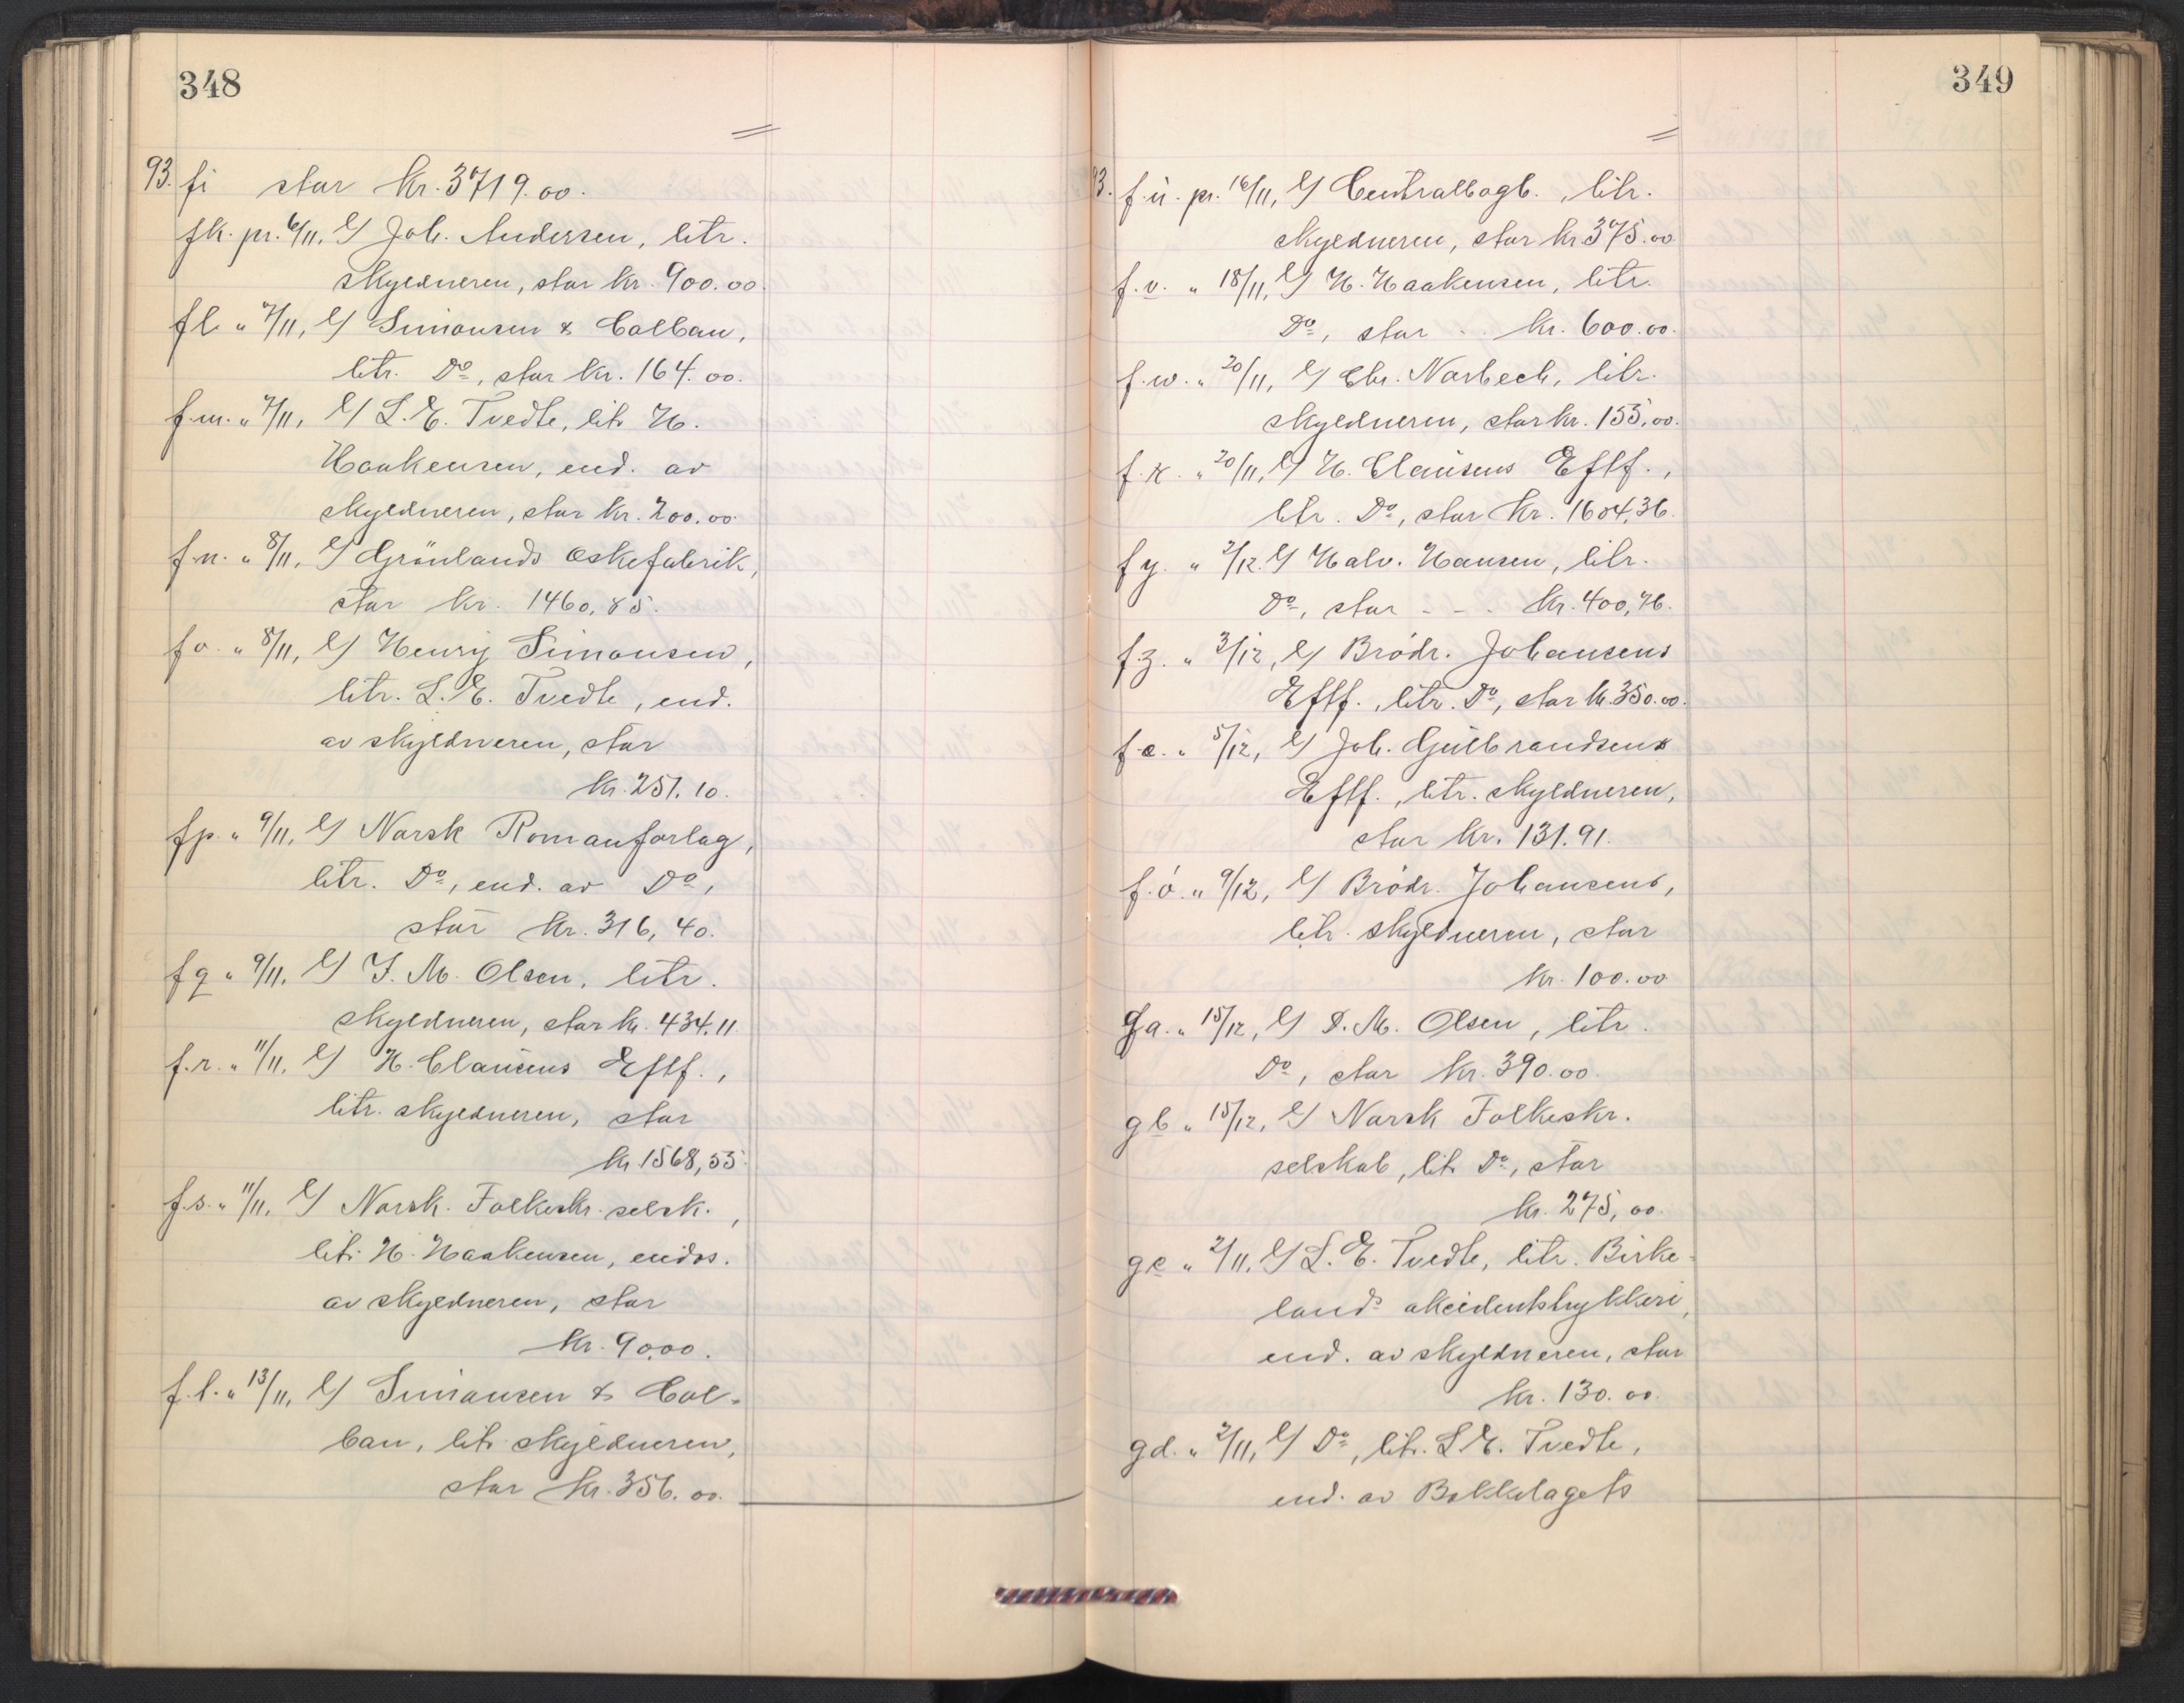 348
93. fi stor kr. 3719.00.
fk. pr. 6/11, e/ Joh. Andersen, litr.
skyldneren, stor kr. 900.00.
fl. „ 7/11, e/ Simonsen & Colban,
litr. Do, stor kr. 164.00.
f.m. „ 7/11, e/ L. E. Tvedte, litr H.
Haakensen, end. av
skyldneren, stor kr. 200.00.
f.n. „ 8/11, e/ Grönlands Æskefabrik,
stor kr. 1460,85.
fo. „ 8/11, e/ Henry Simonsen,
litr. L. E. Tvedte, end.
av skyldneren, stor
kr. 251.10.
fp. „ 9/11, e/ Norsk Romanforlag,
litr. Do, end. av Do,
stor kr. 316,40.
fq „ 9/11, e/ I. M. Olsen, litr.
skyldneren, stor kr. 434.11
f.r. „ 11/11, e/ H. Clausens Eftf.,
litr. skyldneren, stor
kr 1568,55.
f.s. „ 11/11, e/ Norsk. Folkeskr. selsk.,
litr H. Haakensen, endos.
av skyldneren, stor
kr. 90.00.
f.t. „ 13/11, e/ Simonsen & Col-
ban, litr skyldneren,
stor kr. 356.00.
349
93. f.u. pr. 16/11, e/ Centralbogb., litr.
skyldneren, stor kr. 375.00
f.v. „ 18/11, e/ H. Haakensen, litr.
Do, stor - - kr. 600.00.
f.w. „ 20/11, e/ Chr. Norbech, litr.
skyldneren, stor kr. 155,00.
f.x. „ 20/11, e/ H. Clausens Eftf.,
litr. Do, stor kr. 1604,36.
fy. „ 2/12. e/ Halv. Hansen, litr.
Do, stor - - - kr. 400,76.
f.z. „ 3/12, e/ Brödr. Johansens
Eftf., litr. Do, stor kr. 350.00.
f.æ. „ 5/12, e/ Joh. Gulbrandsens
Eftf., litr. skyldneren,
stor kr. 131.91.
f.ö. „ 9/12, e/ Brödr. Johansens,
litr. skyldneren, stor
kr. 100.00
ga. „ 15/12, e/ I. M. Olsen, litr.
Do, stor kr. 390.00.
gb „ 15/12, e/ Norsk Folkeskr.
selskab, litr Do, stor
kr. 275,00.
gc „ 2/11, e/ L. E. Tvedte, litr. Birke-
lands akcidenstrykkeri,
end. av skyldneren, stor
kr. 130.00.
gd. „ 2/11, e/ Do, litr. L. E. Tvedte,
end. av Boklagets